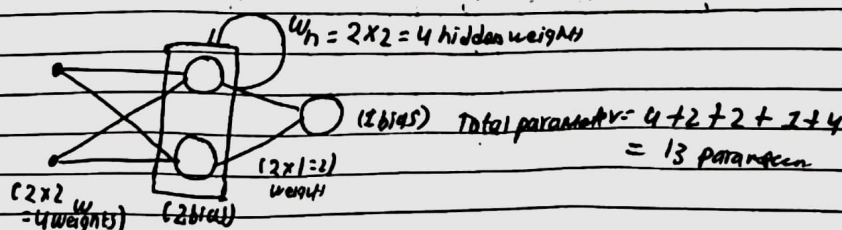 Wh = 2×2 = 4 hidden weights
(1 bias) Total parameter = 4+2+2+1+4
= 13 parameters
(2×1=2)
weight
(2×2
= 4 weights)
(2 bias)